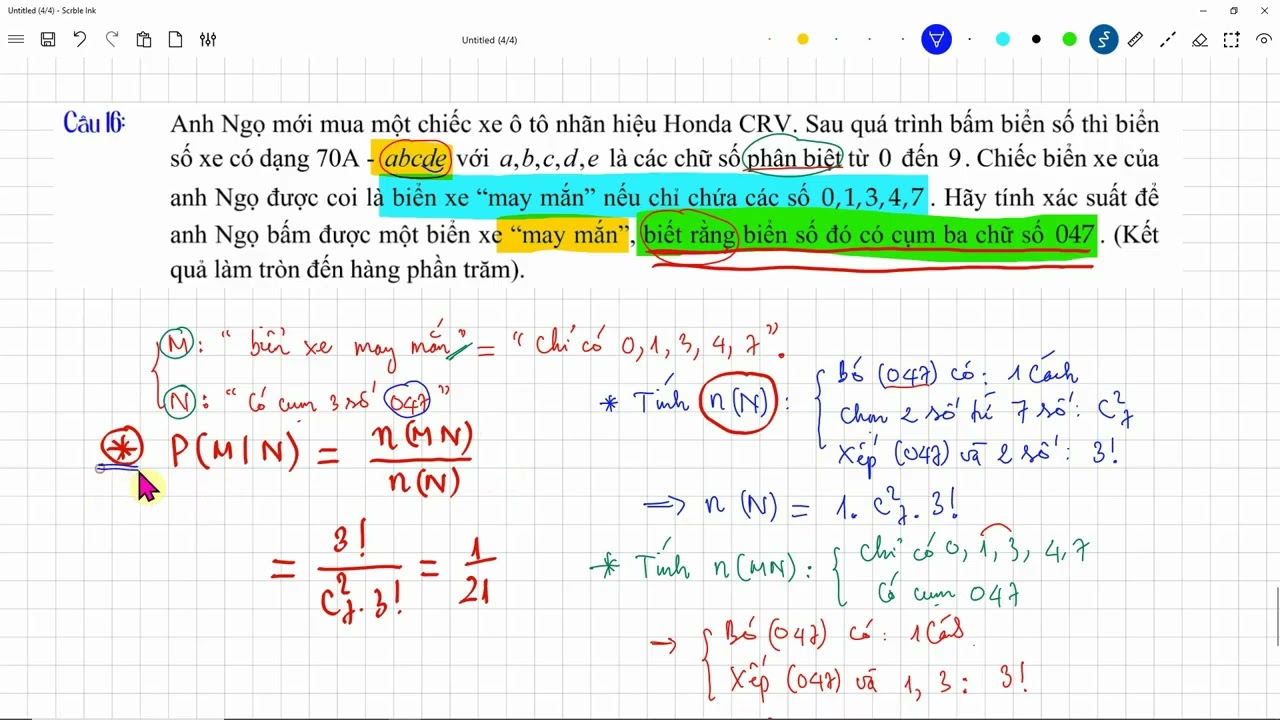 Untitled (4/4) - Scrble Ink
Untitled (4/4)
Câu 16:
Anh Ngọ mới mua một chiếc xe ô tô nhãn hiệu Honda CRV. Sau quá trình bấm biển số thì biển
số xe có dạng 70A - abcde với a,b,c,d,e là các chữ số phân biệt từ 0 đến 9. Chiếc biển xe của
anh Ngọ được coi là biển xe “may mắn” nếu chỉ chứa các số 0,1,3,4,7. Hãy tính xác suất để
anh Ngọ bấm được một biển xe “may mắn”, biết rằng biển số đó có cụm ba chữ số 047. (Kết
quả làm tròn đến hàng phần trăm).
M: “biển xe may mắn” = “Chỉ có 0, 1, 3, 4, 7”.
N: “Có cụm 3 số 047”
* P(M|N) = n(MN) / n(N)
= 3! / C²₇. 3! = 1 / 21
* Tính n(N):
Bó (047) có: 1 Cách
Chọn 2 số từ 7 số: C²₇
Xếp (047) và 2 số: 3!
=> n(N) = 1. C²₇. 3!
* Tính n(MN):
Chỉ có 0, 1, 3, 4, 7
Có cụm 047
→
Bó (047) có: 1 Cách
Xếp (047) và 1, 3: 3!